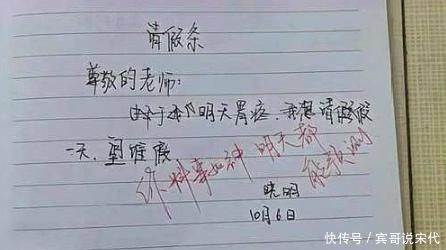 请假条
尊敬的老师:
由于我明天胃疼,我想请假
一天,望准假
你料事如神 明天都
能预测
晓明
10月6日
快传号/宾哥说宋代